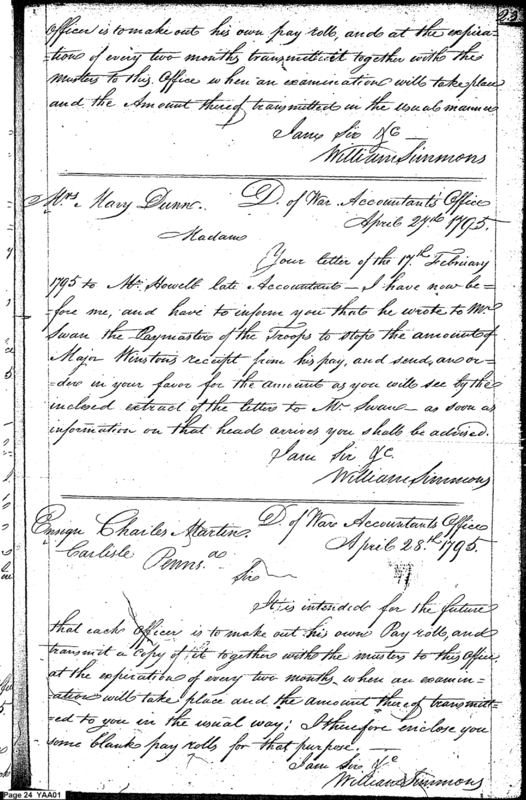 23
Officer is to make out his own pay roll, and at the expira-
-tion of every two months transmit it together with the
musters to this Office when an examination will take place
and the Amount thereof transmitted in the usual manner
I am Sir &C
William Simmons
Mrs Mary Dunn. D. of War Accountant's Office
April 27th 1795.
Madam
Your letter of the 17th February
1795 to Mr Howell late Accountant - I have now be-
fore me, and have to inform you that he wrote to Mr
Swan the Paymaster of the Troops to stop the amount of
Major Winstons receipt from his pay, and send, an or-
-der in your favor for the amount as you will see by the
inclosed extract of the letter to Mr Swan - as soon as
information on that head arrives you shall be advised.
I am Sir &C
William Simmons
Ensign Charles Martin D. of War Accountants Office
Carlisle Penns.a April 28th 1795.
Sir
It is intended for the future
that each Officer is to make out his own Pay roll, and
transmit a Copy of it together with the musters to this Office
at the expiration of every two months, when an examin-
-ation will take place and the amount thereof transmitt-
-ed to you in the usual way; I therefore enclose you
some blank pay rolls for that purpose. —
I am Sir &c
William Simmons
Page 24 YAA01